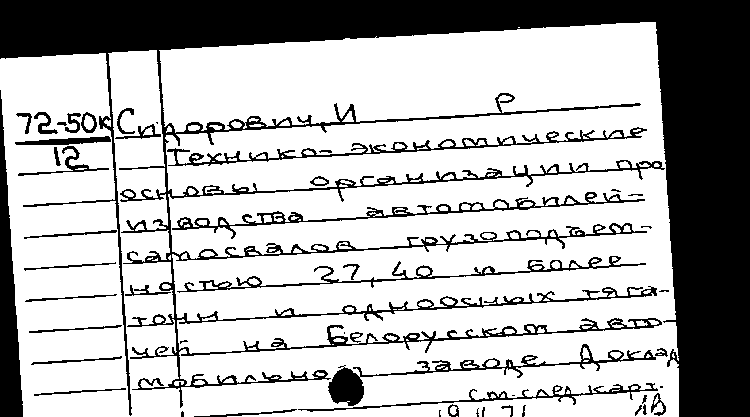 72-50к Сидорович, И Р
12 Технико-экономические
основы организации про
изводства автомобилей-
самосвалов грузоподъем-
ностью 27, 40 и более
тонн и одноосных тяга-
чей на Белорусском авто-
мобильном заводе. Доклад
см. след. карт.